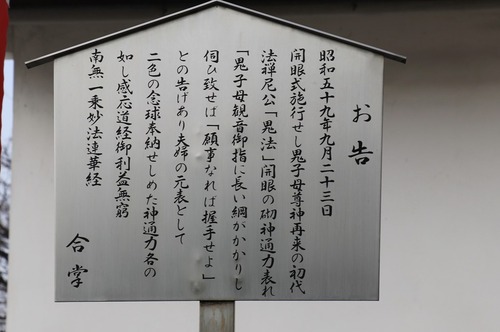 お告
昭和五十九年九月二十三日
開眼式施行せし鬼子母尊神再来の初代
法禅尼公「鬼法」開眼の砌神通力表れ
「鬼子母観音御指に長い綱がかかりし
伺ひ致せば「願事なれば握手せよ」
との告げあり夫婦の元表として
二色の念球奉納せしめた神通力各の
如し感応道経御利益無窮
南無一乗妙法連華経
合掌